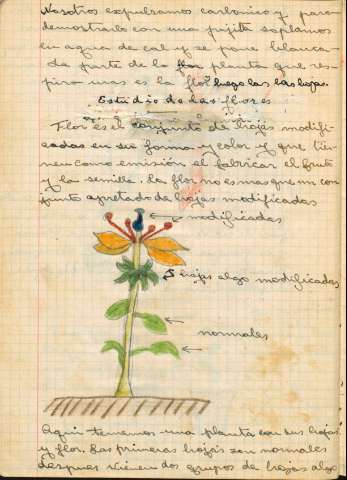 Nosotros expulsamos carbonico y para
demostrarlo con una pajita soplamos
en agua de cal y se pone blanca
da parte de la flor planta que res-
pira mas es la flor luego las las hojas.
Estudio de las flores
Flor es el conjunto de hojas modifi-
cadas en su forma y color y que tie-
nen como emisión el fabricar el fruto
y la semilla. La flor no es mas que un con
junto apretado de hojas modificadas
modificadas
5 hojas algo modificadas
normales
Aqui tenemos una planta con sus hojas
y flor. Las primeras hojas son normales
despues vienen dos grupos de hojas algo